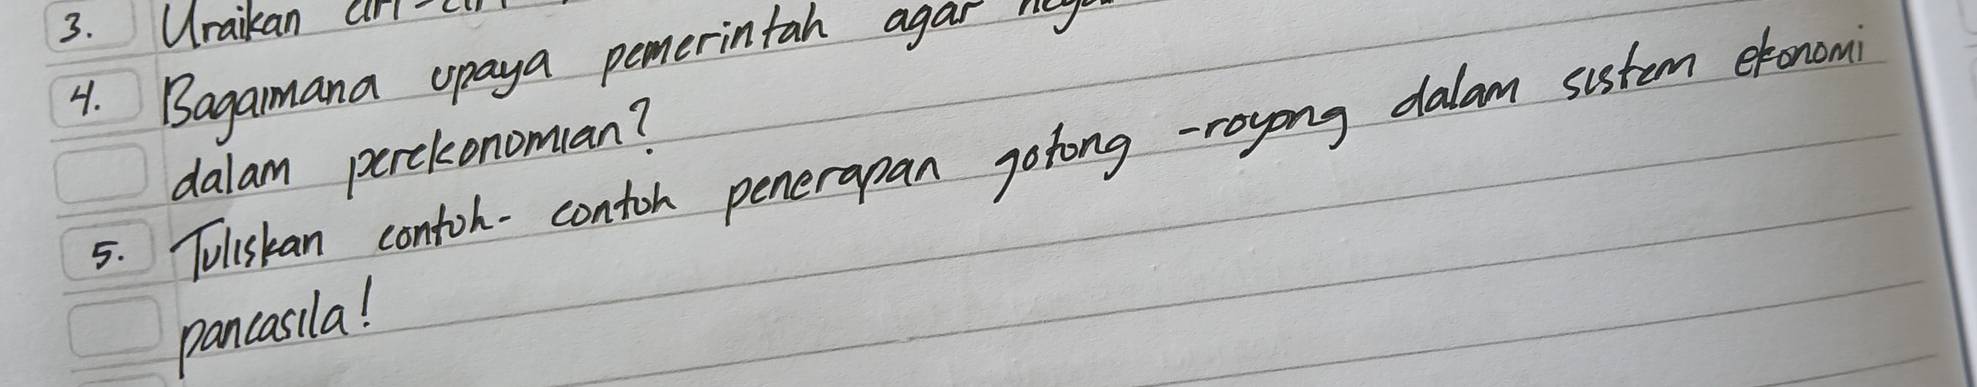 3. Uraikan
4. Bagaimana upaya pemerintah agar
dalam perekonomian?
5. Tuliskan contoh-contoh penerapan gotong-royong dalam sistem ekonomi
pancasila!